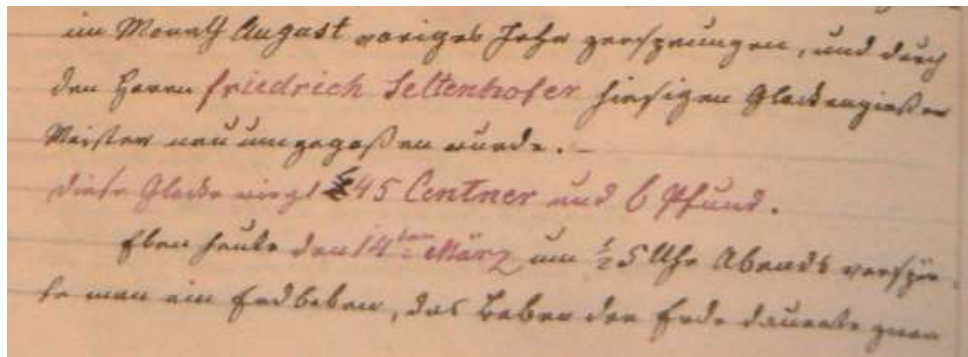 im Monath August voriges Jahr zersprungen, und durch
den Herrn Friedrich Seltenhofer hiesigen Glockengießer
Meister neu umgegoßen wurde. –
Diese Glocke wiegt 45 Centner und 6 Pfund.
Eben heute den 14ten März um ½ 5 Uhr Abends verspür-
te man ein Erdbeben, das Beben der Erde dauerte zwar